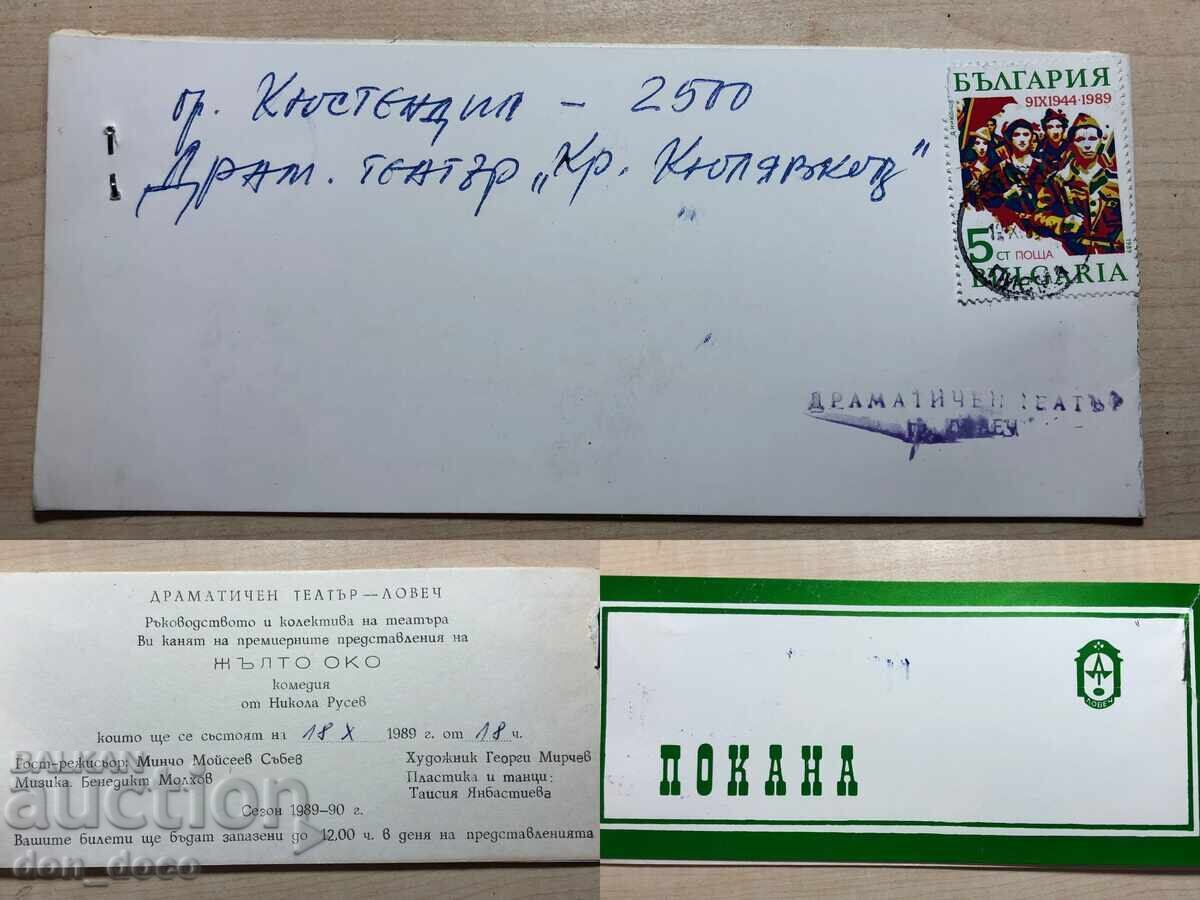 гр. Кюстендил - 2500
Драм. театър „Кр. Кюлявков"
БЪЛГАРИЯ
9IX1944·1989
5 СТ ПОЩА
BULGARIA
1989
ДРАМАТИЧЕН ТЕАТЪР
гр. ЛОВЕЧ
ДРАМАТИЧЕН ТЕАТЪР — ЛОВЕЧ
Ръководството и колектива на театъра
Ви канят на премиерните представления на
ЖЪЛТО ОКО
комедия
от Никола Русев
които ще се състоят на 18 X 1989 г. от 18 ч.
Гост-режисьор: Минчо Мойсеев Събев
Музика. Бенедикт Молхов
Художник Георги Мирчев
Пластика и танци:
Таисия Янбастиева
Сезон 1989–90 г.
Вашите билети ще бъдат запазени до 12,00 ч. в деня на представленията
BALKAN
auction
don_doco
ЛОВЕЧ
ПОКАНА